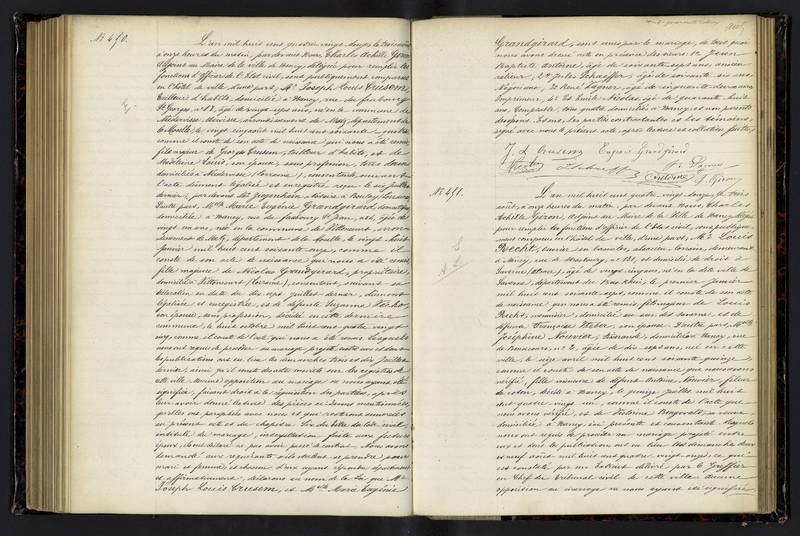 N° 450.
L'an mil huit cent quatre vingt douze le trois août
à onze heures du matin, par devant Nous, Charles Achille Giron
Adjoint au Maire de la ville de Nancy, délégué pour remplir les
fonctions d'officier de l'Etat civil, sont publiquement comparus
en l'hôtel de ville d'une part, Mr Joseph Louis Crusem,
tailleur d'habits, domicilié à Nancy, rue du faubourg
St Georges, n° 83, âgé de vingt sept ans, né en la commune de
arrondissement de Metz, département de
la Moselle, le vingt cinq août mil huit cent soixante quatre
comme il conste de son acte de naissance qui nous a été remis
fils majeur de Georges Crusem, tailleur d'habits, et de
Madeleine Louis, son épouse, sans profession, tous deux
domiciliés à (Lorraine), consentant suivant
l'acte dûment légalisé et enregistré reçu le six juillet
dernier, par devant Me notaire à Boulay, Lorraine
D'autre part, Melle Marie Eugénie Grandgirard, domestique
domiciliée à Nancy, rue du faubourg St Jean, n° 26, âgée de
vingt un ans, née en la commune de Vittoncourt, arron-
dissement de Metz, département de la Moselle le vingt huit
janvier mil huit cent soixante onze, comme il
conste de son acte de naissance qui nous a été remis
fille majeure de Nicolas Grandgirard, propriétaire,
domicilié à Vittoncourt (Lorraine), consentant, suivant sa
déclaration en date du dix sept juillet dernier, dûment
légalisée et enregistrée, et de défunte Suzanne
son épouse, sans profession, décédée en cette dernière
commune, le huit octobre mil huit cent quatre vingt
comme il conste de l'acte qui nous a été remis. Lesquels
nous ont requis de procéder au mariage projeté entre eux et dont
les publications ont eu lieu les dimanches trois et dix juillet
dernier, ainsi qu'il conste des actes inscrits sur les registres de
cette ville. Aucune opposition au mariage ne nous ayant été
signifiée, faisant droit à la réquisition des parties, après
leur avoir donné lecture des pièces ci-dessus mentionnées,
qu'elles ont paraphées avec nous et qui resteront annexées
au présent acte et du chapitre Six du titre du Code civil
intitulé du mariage, interpellation faite aux futurs
époux, ils ont déclaré ne pas avoir passé de contrat. Nous avons
demandé aux requérants s'ils veulent se prendre pour
mari et femme, et chacun d'eux ayant répondu séparément
et affirmativement, déclarons au nom de la Loi que Mr
Joseph Louis Crusem, et Melle Marie Eugénie
Grandgirard, sont unis par le mariage, de tout quoi
nous avons dressé acte en présence des sieurs 1° Jean
Baptiste Antoine, âgé de soixante sept ans, ancien
relieur, 2° Jules Schaeffer, âgé de soixante six ans
Négociant, 3° René Vagner, âgé de cinquante deux ans
Imprimeur, 4° Et Emile Nicolas, âgé de quarante huit
ans, Comptable, tous quatre domiciliés à Nancy, et non parents
des époux. Et ont, les parties contractantes et les témoins,
signé avec nous le présent acte, après lecture et collation faites,
J L Crusem Eugénie Grandgirard
Nicolas Schaeffer R. Vagner
B Antoine A. Giron
N° 451.
L'an mil huit cent quatre vingt douze le trois
août, à onze heures du matin, par devant Nous, Charles
Achille Giron, Adjoint au Maire de la Ville de Nancy, délégué
pour remplir les fonctions d'officier de l'Etat civil, sont publique-
ment comparus en l'hôtel de ville, d'une part, Mr Louis
Brecht, ouvrier en lorrain, demeurant
à Nancy, rue de Strasbourg, n° 131, et domicilié de droit à
Saverne (Alsace), âgé de vingt cinq ans, né en la dite ville de
Saverne, département du Bas-Rhin, le premier janvier
mil huit cent soixante sept, comme il conste de son acte
de naissance qui nous a été remis, fils majeur de Louis
Brecht, domicilié au lieu dit Saverne, et de
défunte Françoise Weber, son épouse. D'autre part, Melle
Joséphine Nouvier, domiciliée à Nancy, rue
n° 2, âgée de dix sept ans, née en cette
ville, le seize avril mil huit cent soixante quinze,
comme il conste de son acte de naissance que nous avons
vérifié, fille mineure de défunt Antoine Nouvier, fileur
de coton, décédé à Nancy, le quinze juillet mil huit
cent quatre vingt un, comme il conste de l'acte que
nous avons vérifié, et de Victorine sa veuve
domiciliée à Nancy, ici présente et consentante. Lesquels
nous ont requis de procéder au mariage projeté entre
eux et dont les publications ont eu lieu les dimanches deux
et neuf août mil huit cent quatre vingt onze, ce qui
est constaté par un extrait délivré par le Greffier
en Chef du tribunal civil de cette ville. Aucune
opposition au mariage ne nous ayant été signifiée